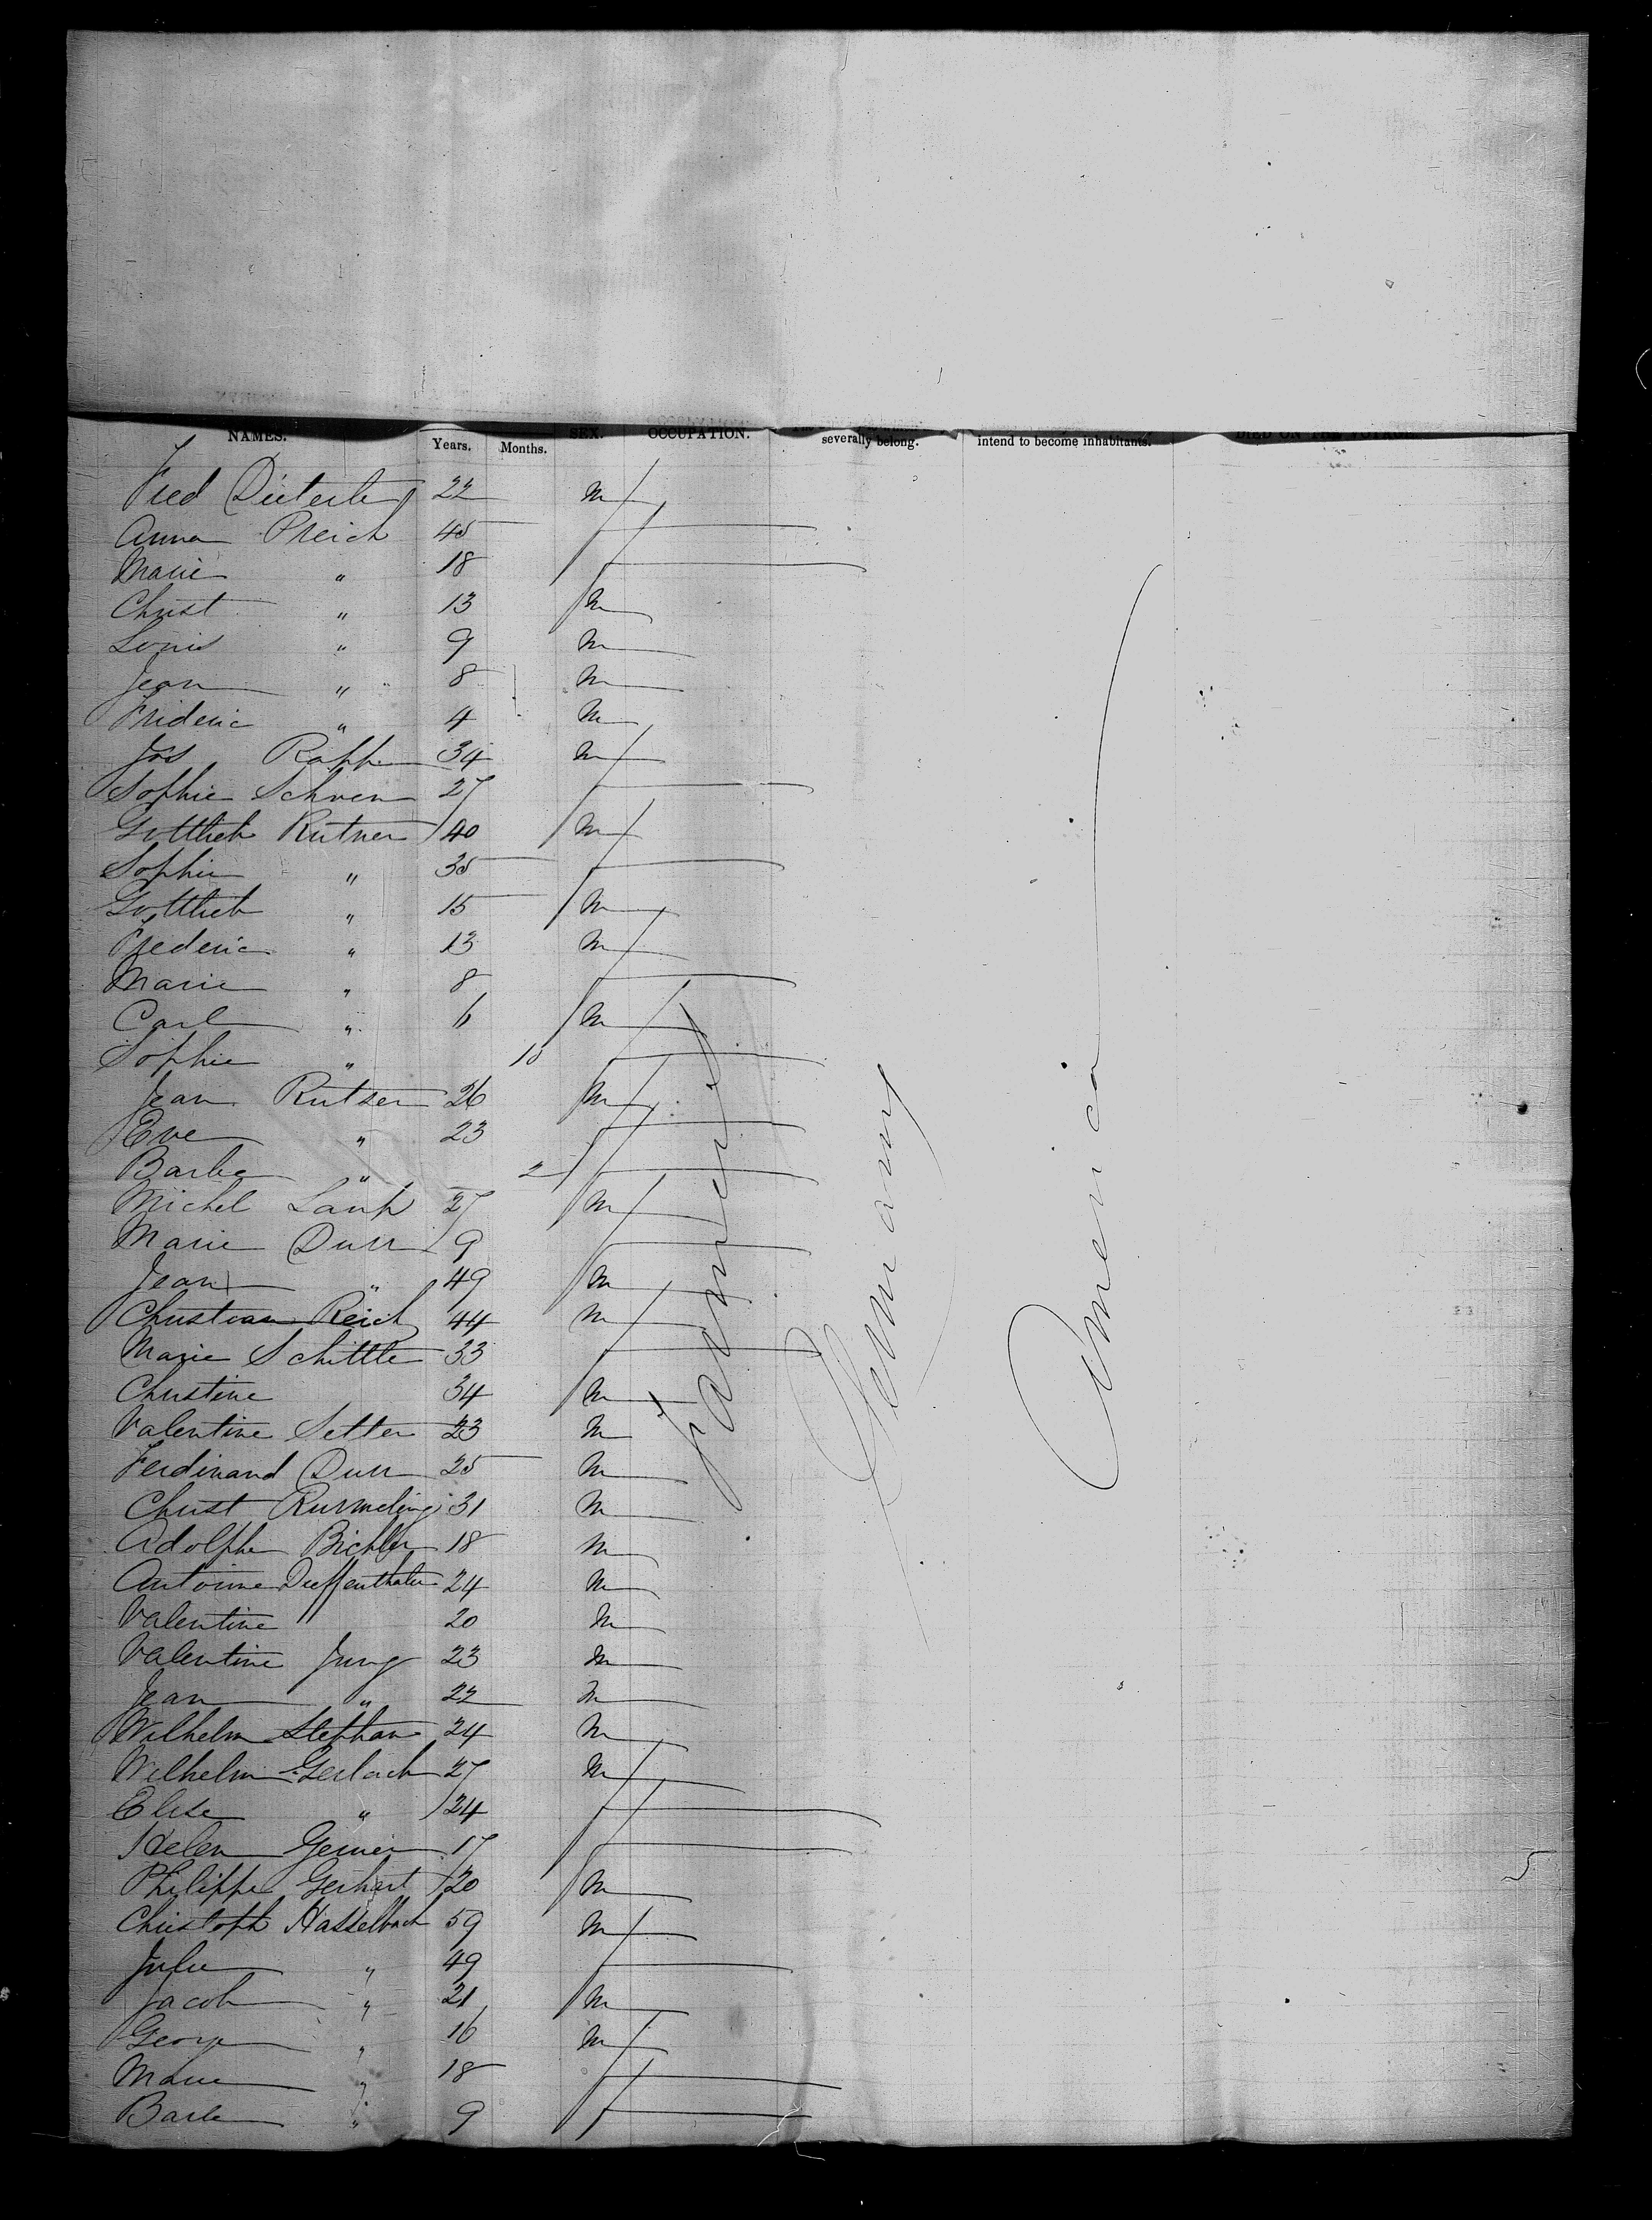 NAMES. Years. Months. SEX. OCCUPATION. severally belong. intend to become inhabitants. DIED ON THE VOYAGE.
Fred Dieterle 22 m
Anna Preich 45 f
Marie " 18 f
Christ " 13 m
Louis " 9 m
Jean " 8 m
Frideric " 4 m
Jos Rapp 34 m
Sophie 27 f
Gottlieb Rutner 40 m
Sophie " 35 f
Gottlieb " 15 m
Frederic " 13 m
Marie " 8 f
Carl " 6 m
Sophie " 10 f
Jean Rutser 26 m
Eve " 23 f
Barbe " 2 f
Michel 27 m
Marie Durr 9 f
Jean " 49 m
Christian Reich 44 m
Marie Schittle 33 f
Christine 34 m
Valentine Setter 23 m
Ferdinand Durr 25 m
Christ 31 m
Adolphe Bichler 18 m
Antoine Dieffenthaler 24 m
Valentine 20 m
Valentine Jung 23 m
Jean " 22 m
Wilhelm Stephan 24 m
Wilhelm Gerlach 27 m
Elise " 24 f
Helen 17 f
Philippe Gerhart 20 m
Christoph Hasselbach 59 m
Julie " 49 f
Jacob " 21 m
George " 16 m
Marie " 18 f
Barbe " 9 f
farmers
Germany
America
5